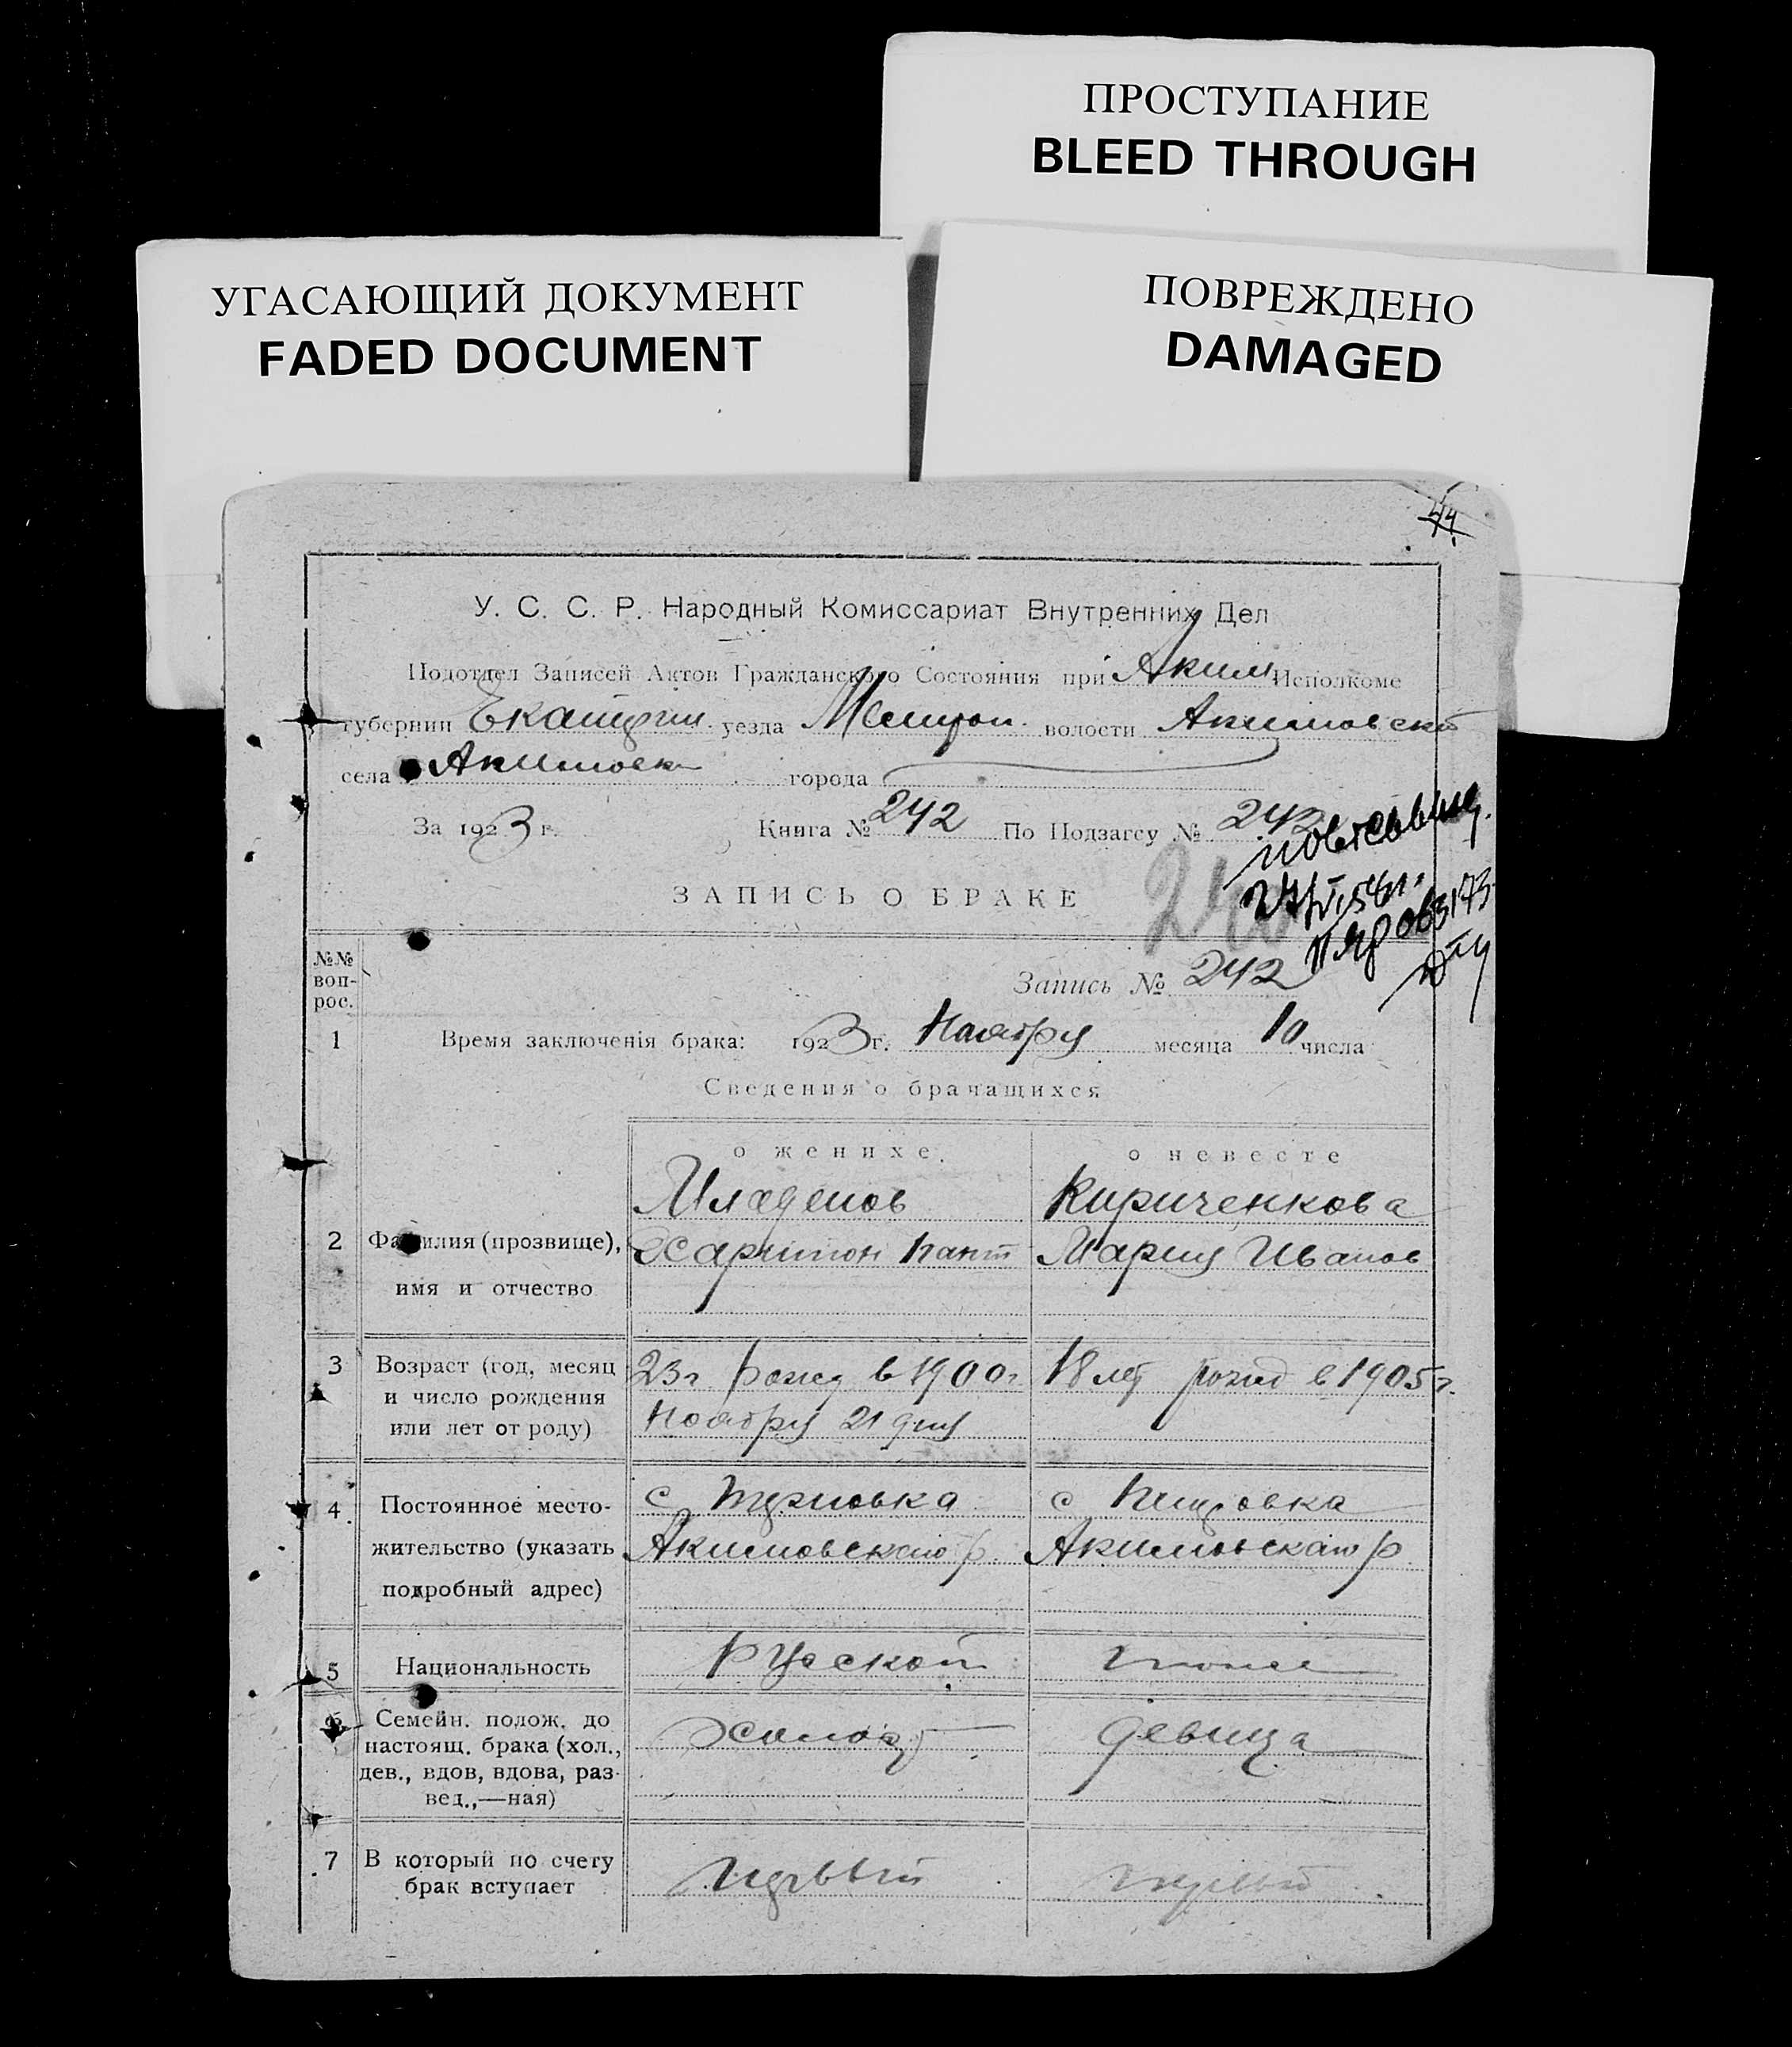 ПРОСТУПАНИЕ
BLEED THROUGH
УГАСАЮЩИЙ ДОКУМЕНТ
FADED DOCUMENT
ПОВРЕЖДЕНО
DAMAGED
44
У. С. С. Р. Народный Комиссариат Внутренних Дел
Подотдел Записей Актов Гражданского Состояния при Аким Исполкоме
губернии Екатерин уезда Мелитоп. волости Акимовской
села Акимовка города
За 1923 г. Книга № 242 По Подзагсу № 242
повторный
ЗАПИСЬ О БРАКЕ
242
№№ вопрос.
Запись № 242
1 Время заключенія брака: 1923 г. Ноября месяца 10 числа
Сведения о брачащихся
о женихе.
о невесте
Младенов
Кириченкова
2 Фамилия (прозвище), имя и отчество
Харитон Кант
Мария Иванов
3 Возраст (год, месяц и число рождения или лет от роду)
23 г. рожд в 1900 г.
Ноября 21 дня
18 лет рожд в 1905 г.
4 Постоянное место-жительство (указать подробный адрес)
с
Акимовского р.
с Петровка
Акимовского р
5 Национальность
Русской
тоже
6 Семейн. полож. до настоящ. брака (хол., дев., вдов, вдова, раз-вед.,—ная)
Холост
девица
7 В который по счету брак вступает
первый
первый